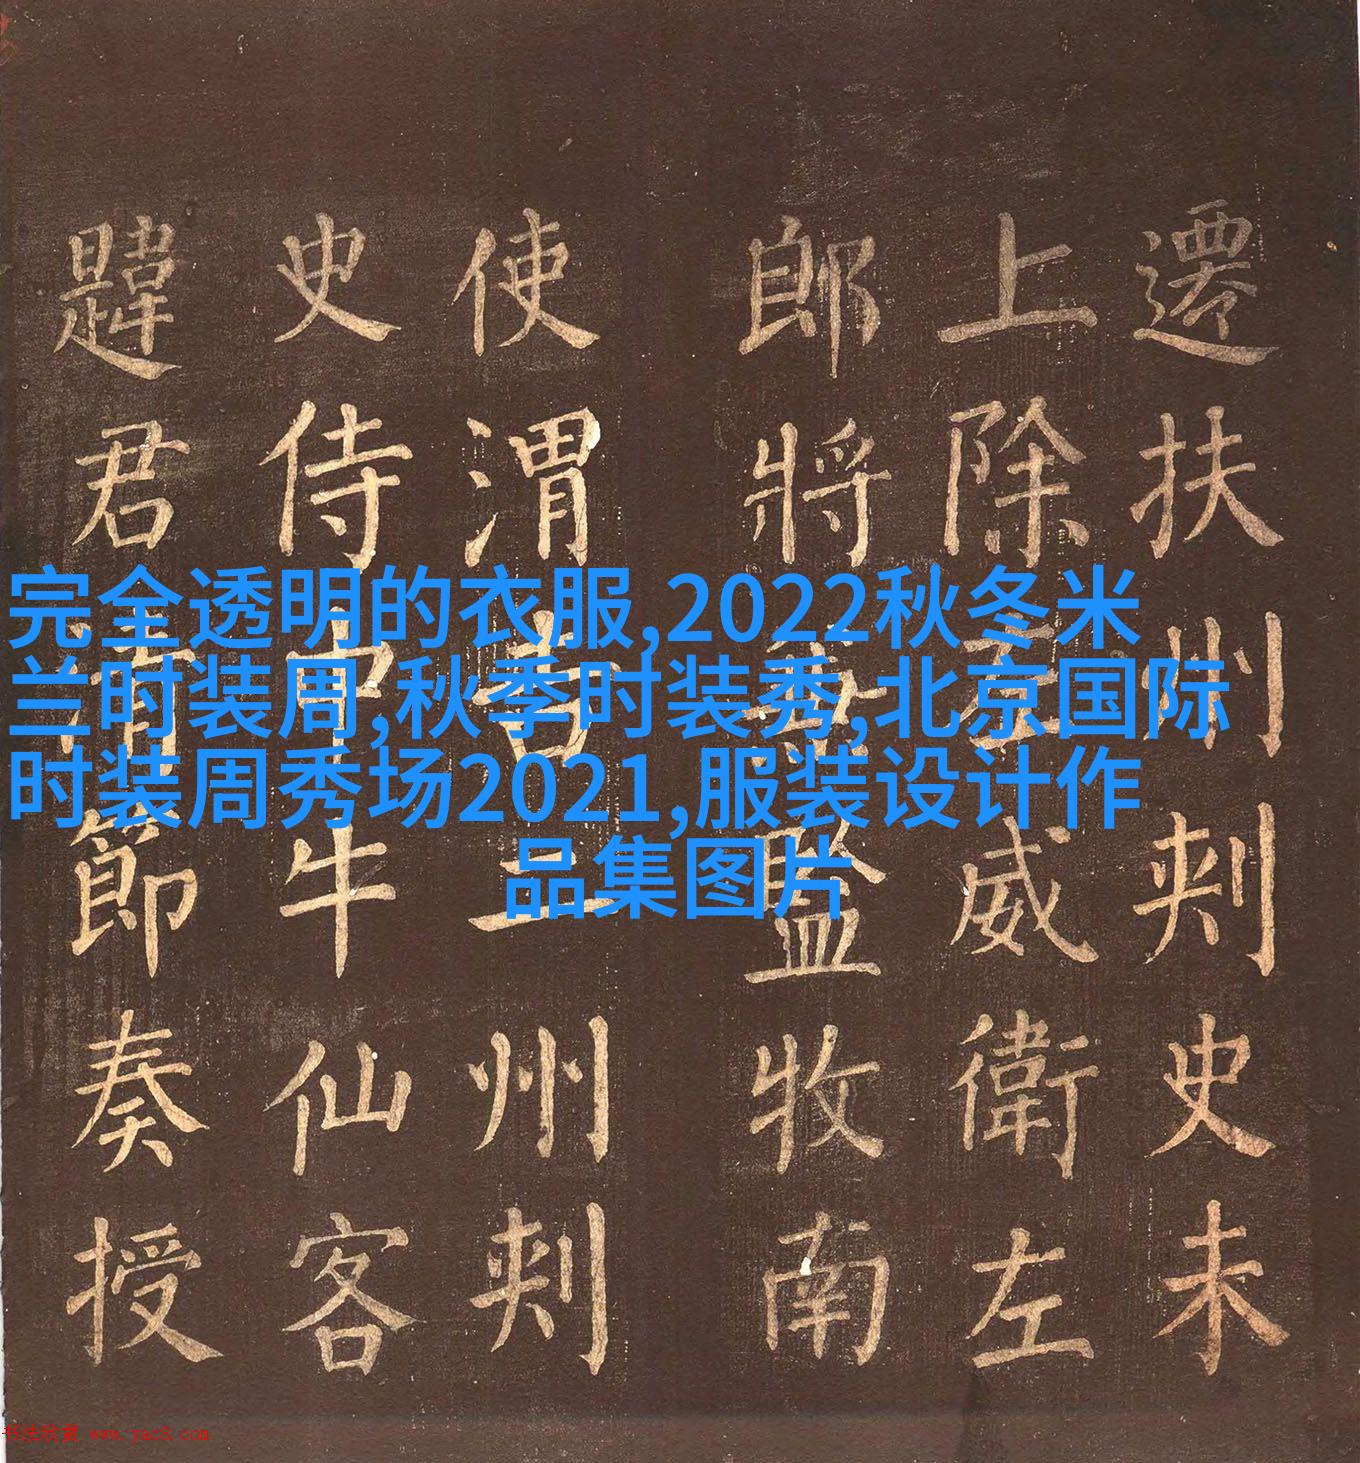 遷扶州刾史未
上除右威衛左
郎將兼監牧南
使渭吉二州刾
史侍中牛仙客
韙君清節奏授
完全透明的衣服,2022秋冬米
兰时装周,秋季时装秀,北京国际
时装周秀场2021,服装设计作
品集图片
书法欣赏 www.yac8.com